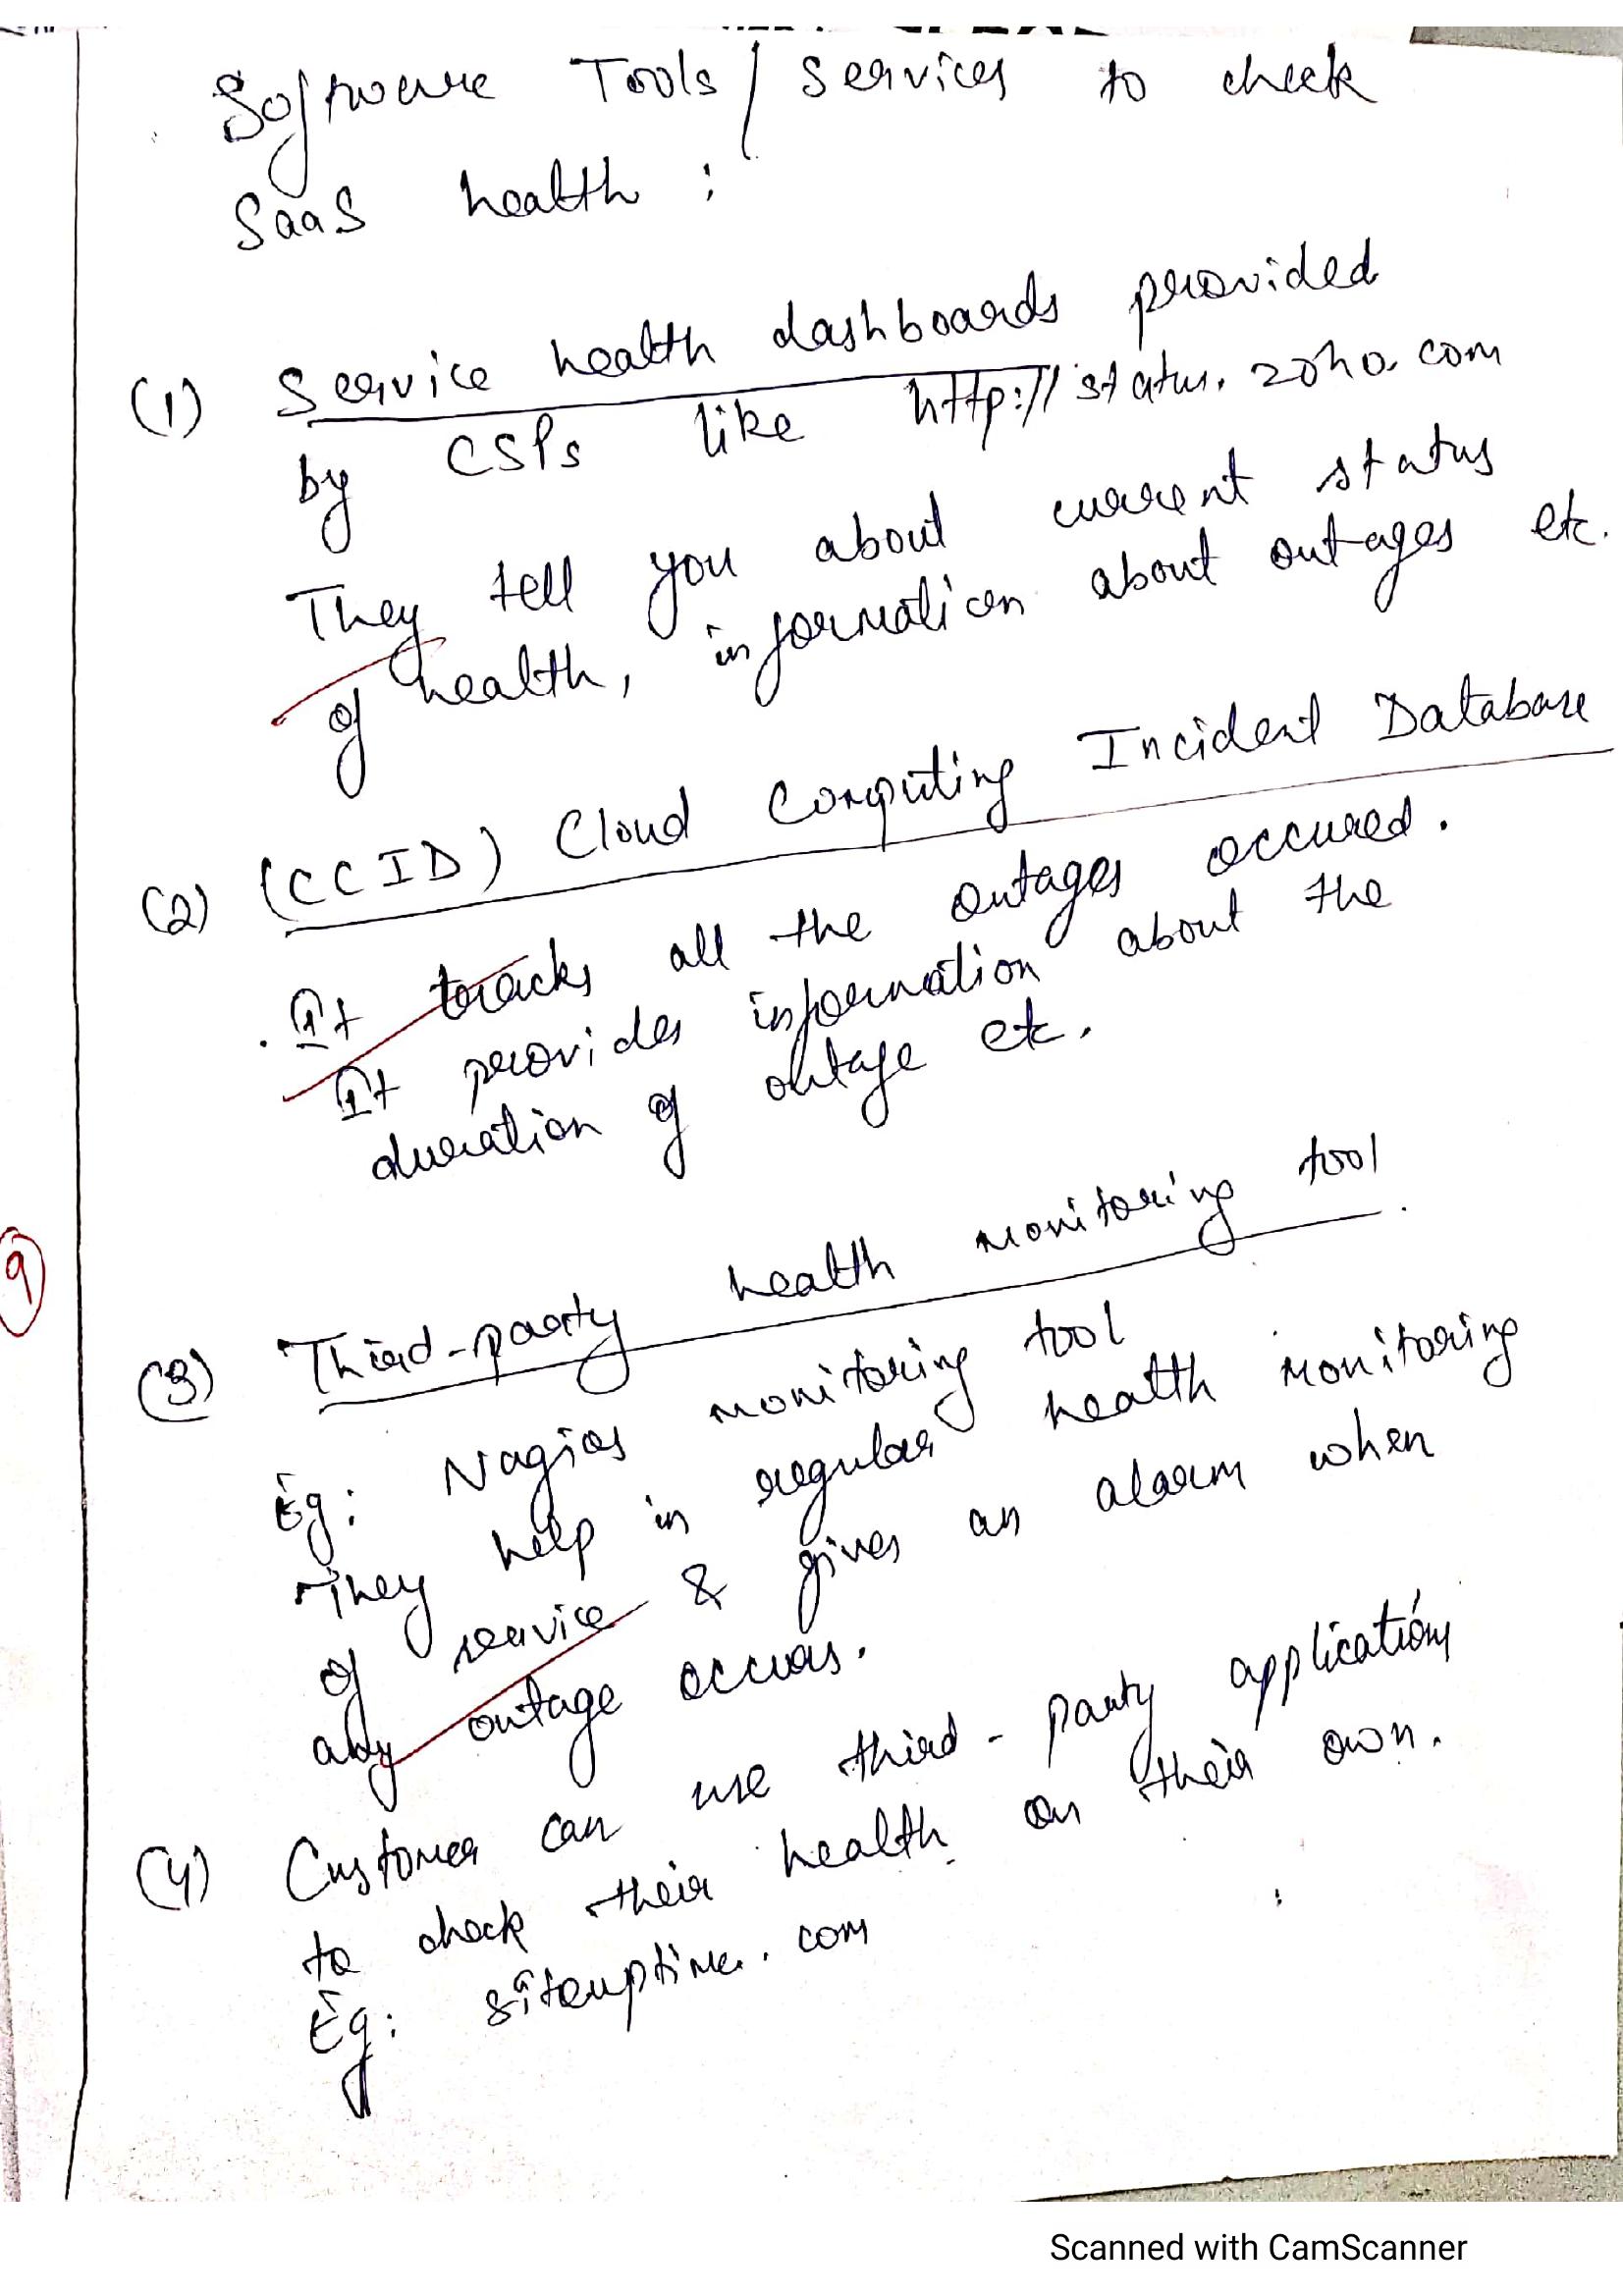 Software Tools / Services to check
SaaS health :
(1) Service health dashboards provided
by CSPs like http://status.zoho.com
They tell you about current status
of health, information about outages etc.
(2) (CCID) Cloud Computing Incident Database
. It tracks all the outages occured.
It provides information about the
duration of outage etc.
9
(3) Third-party health monitoring tool.
Eg: Nagios monitoring tool
They help in regular health monitoring
of service & gives an alarm when
any outage occurs.
(4) Customer can use third-party applications
to check their health on their own.
Eg: siteuptime.com
Scanned with CamScanner